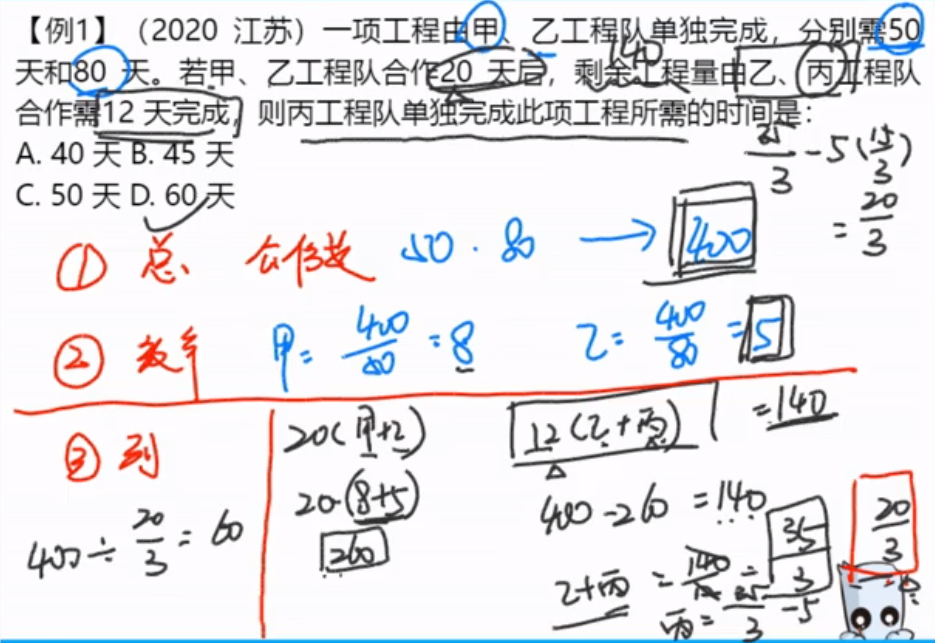 【例1】（2020 江苏）一项工程由甲、乙工程队单独完成，分别需50
天和80 天。若甲、乙工程队合作20 天后，剩余工程量由乙、丙工程队
合作需12 天完成，则丙工程队单独完成此项工程所需的时间是：
140
A. 40 天 B. 45 天
C. 50 天 D. 60 天
35/3 - 5 (15/3)
= 20/3
① 总 公倍数 50 · 80 → 400
② 效率 甲 = 400/50 = 8 乙 = 400/80 = 5
③ 列 20(甲+乙) 12(乙+丙) = 140
20·(8+5) 400 - 260 = 140
400 ÷ 20/3 = 60 260 35/3 20/3
乙+丙 = 140/12 =
丙 = 35/3 - 5